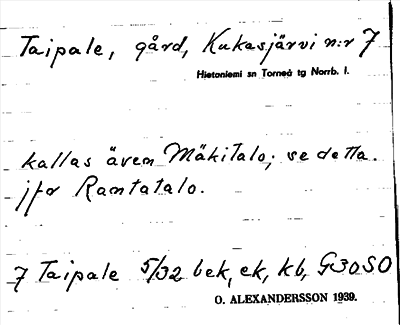 Taipale, gård, Kukasjärvi n:r 7
Hietaniemi sn Torneå tg Norrb. l.
kallas även Mäkitalo; se detta.
jfr Rantatalo.
7 Taipale 5/32 bek, ek, kb, G30SO
O. ALEXANDERSSON 1939.